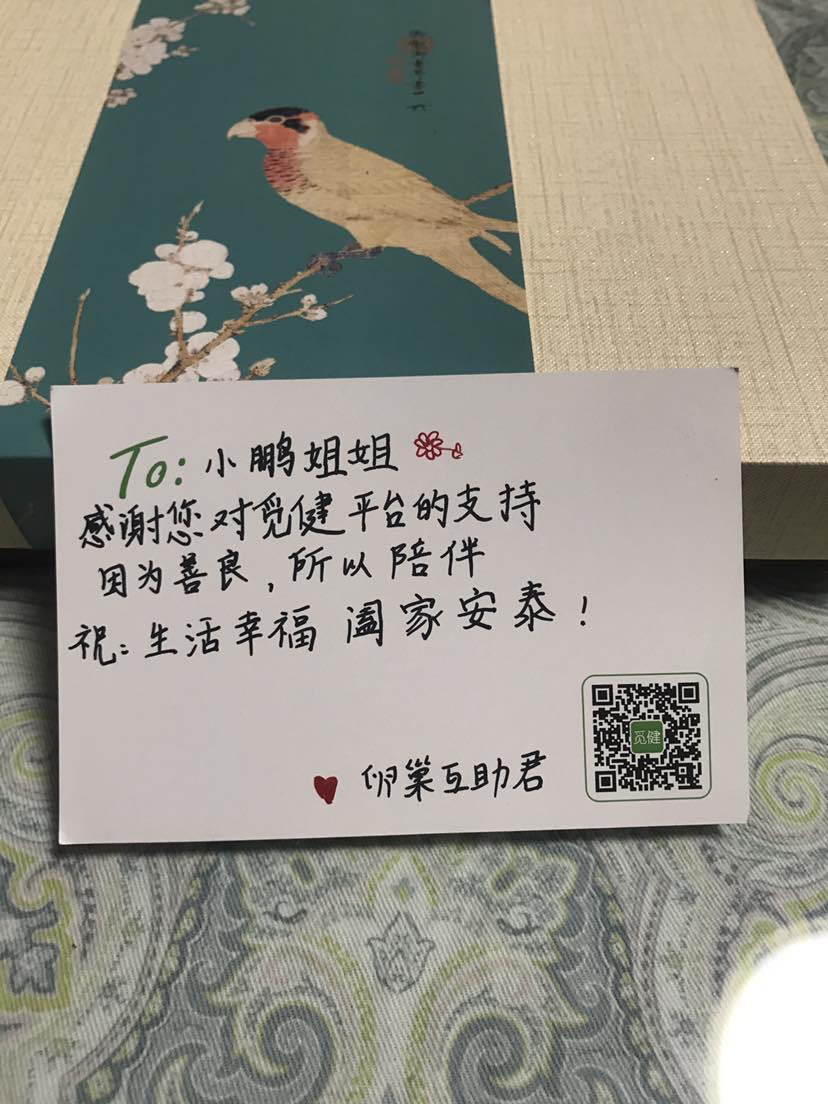 To: 小鹏姐姐
感谢您对觅健平台的支持
因为善良，所以陪伴
祝：生活幸福 阖家安泰！
卵巢互助君
觅健